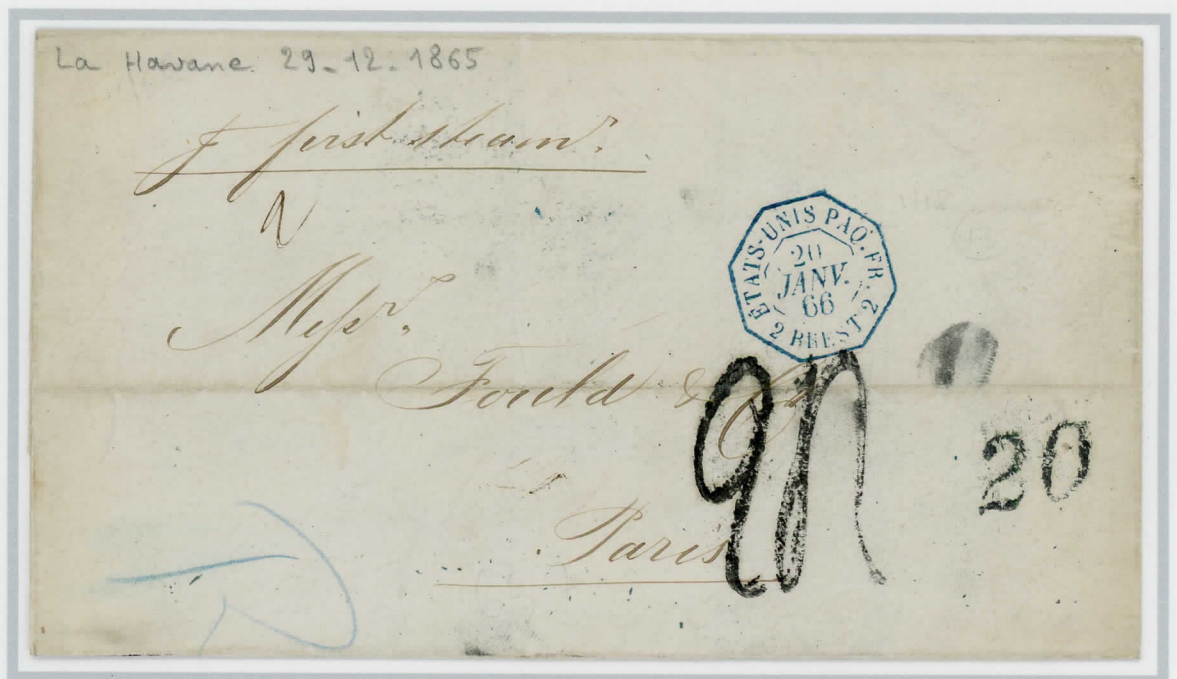 La Havane. 29-12-1865
p first steamr.
Messr.
Fould & Co
Paris
ÉTATS-UNIS PAQ. FR.
20
JANV.
66
2 BREST 2
20